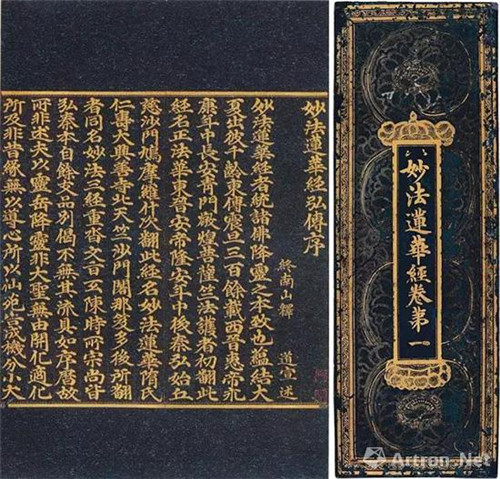 妙法蓮華經弘傳序
終南山釋 道宣 述
妙法蓮華經者統諸佛降靈之本致也蘊結大
夏出彼千齡東傳震旦三百餘載西晉惠帝永
康年中長安青門燉煌菩薩竺法護者初翻此
經名正法華東晉安帝隆安年中後秦弘始丘
慈沙門鳩摩羅什次翻此經名妙法蓮華隋氏
仁壽大興善寺北天竺沙門闍那笈多後所翻
者同名妙法三經重沓文旨互陳時所宗尚皆
弘秦本自餘支品別偈不無其流具如序曆故
所非述夫以靈岳降靈非大聖無由開化適化
所及非昔緣無以導心所以仙苑告成機分小大
妙法蓮華經卷第一
Artron.Net